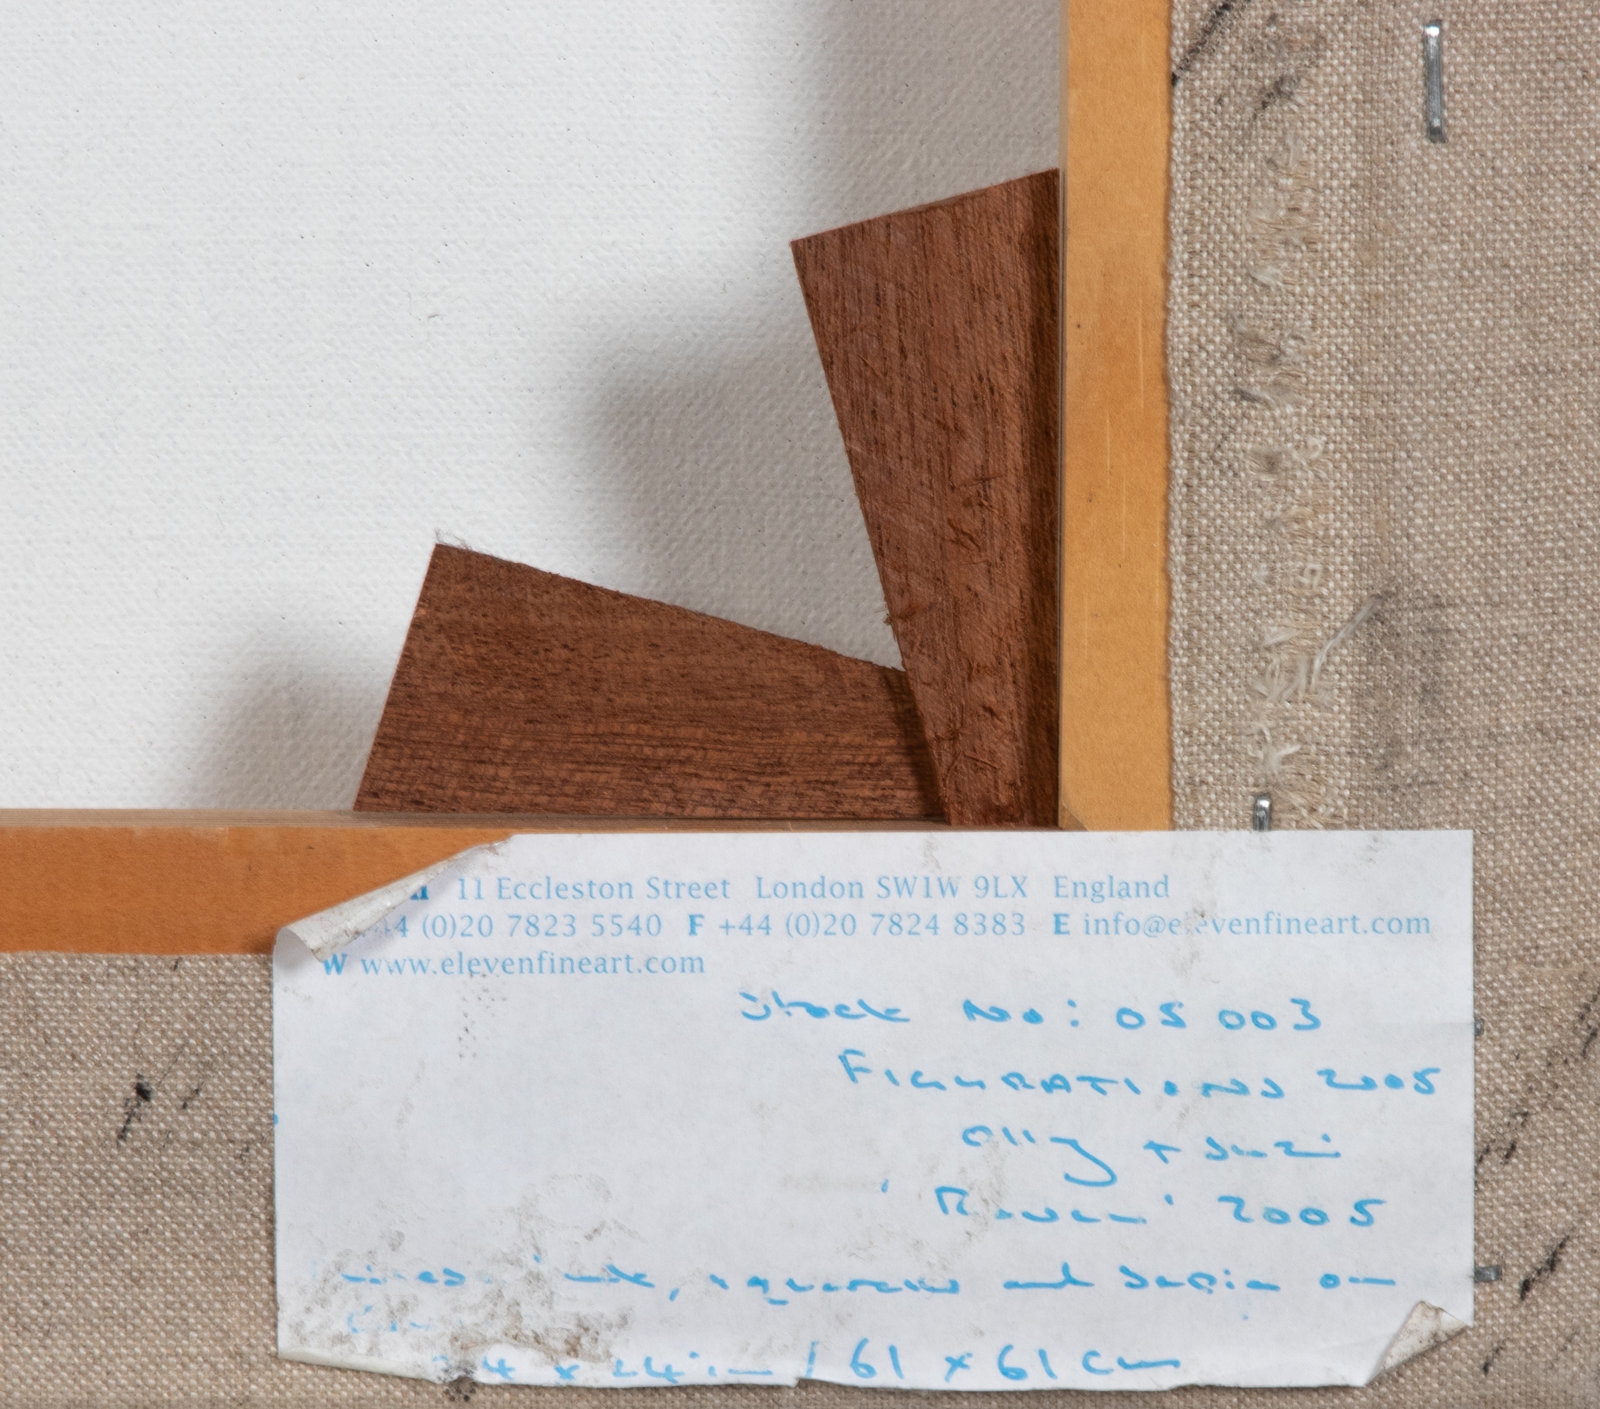 11 Eccleston Street London SW1W 9LX England
44 (0)20 7823 5540 F +44 (0)20 7824 8383 E info@elevenfineart.com
W www.elevenfineart.com
Stock No: 05 003
FIGURATIONS 2005
Olly + Suzi
'Raven' 2005
and sepia on
24 x 24 in / 61 x 61 cm